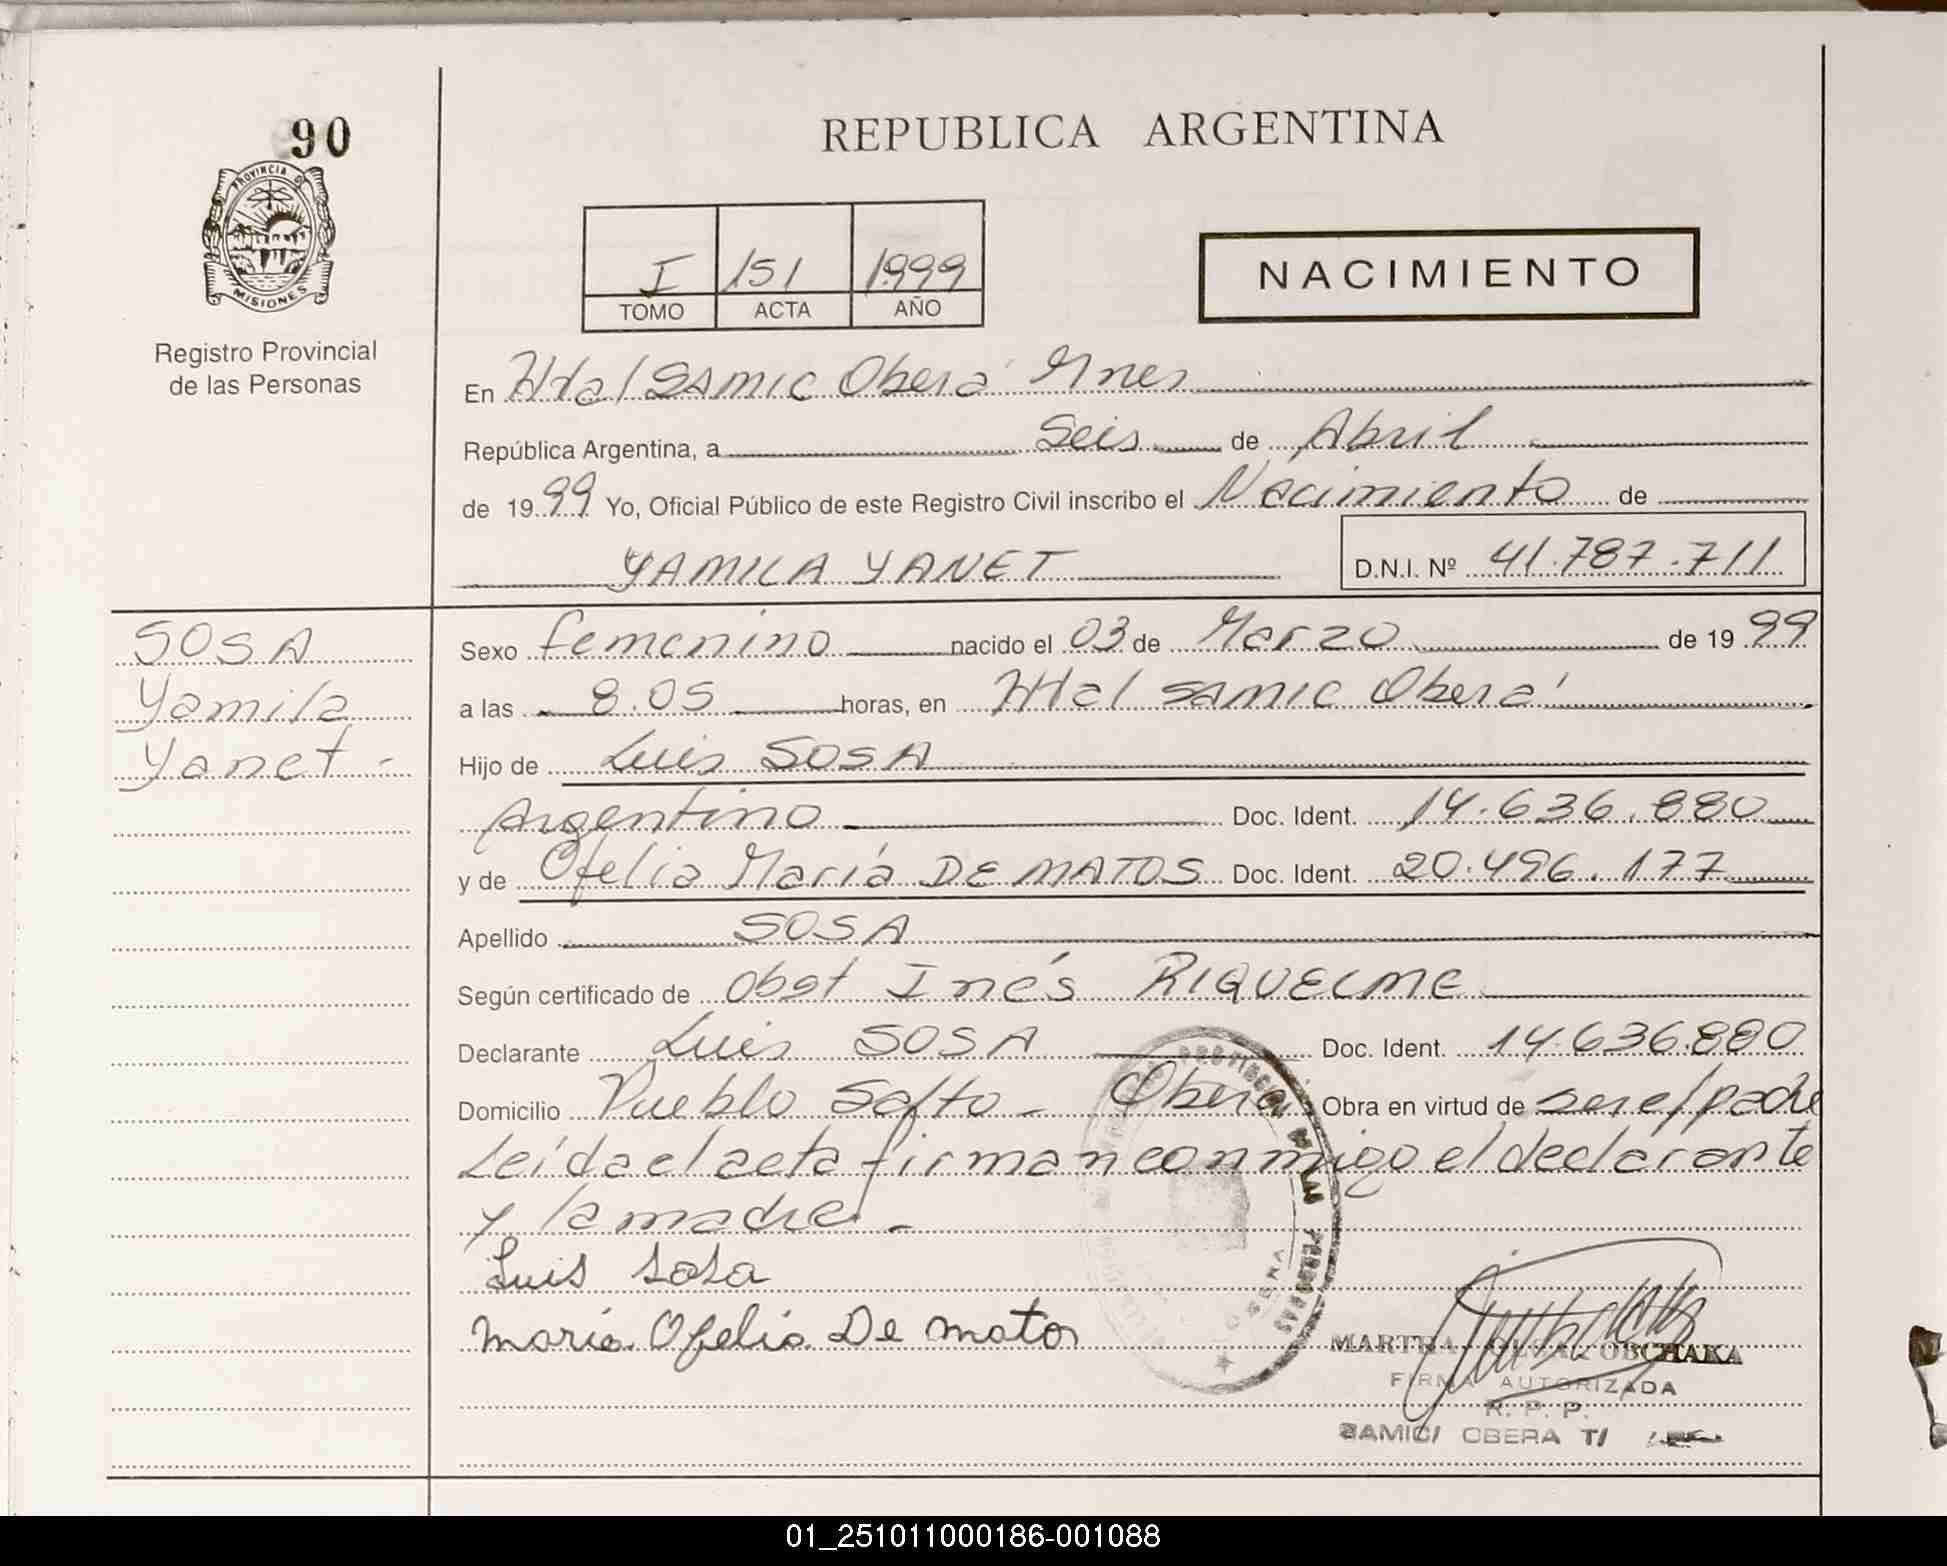 90
REPUBLICA ARGENTINA
PROVINCIA DE
MISIONES
Registro Provincial
de las Personas
I 151 1999
TOMO ACTA AÑO
NACIMIENTO
En Htal SAMIC Oberá Mnes
República Argentina, a Seis de Abril
de 1999 Yo, Oficial Público de este Registro Civil inscribo el Nacimiento de
YAMILA YANET D.N.I. Nº 41.787.711
SOSA
Yamila
Yanet -
Sexo femenino nacido el 03 de Marzo de 1999
a las 8.05 horas, en Htal SAMIC Oberá
Hijo de Luis SOSA
Argentino Doc. Ident. 14.636.880
y de Ofelia María DE MATOS Doc. Ident. 20.496.177
Apellido SOSA
Según certificado de Obst Inés RIQUELME
Declarante Luis SOSA Doc. Ident. 14.636.880
Domicilio Pueblo Salto - Oberá Obra en virtud de ser el padre
Leída el acta firman conmigo el declarante
y la madre. -
Luis Sosa
Maria Ofelia De Matos
PERSONAS
OBERA
MARTHA OLGA
FIRMA AUTORIZADA
R. P. P.
SAMIC/ OBERA T/
01_251011000186-001088